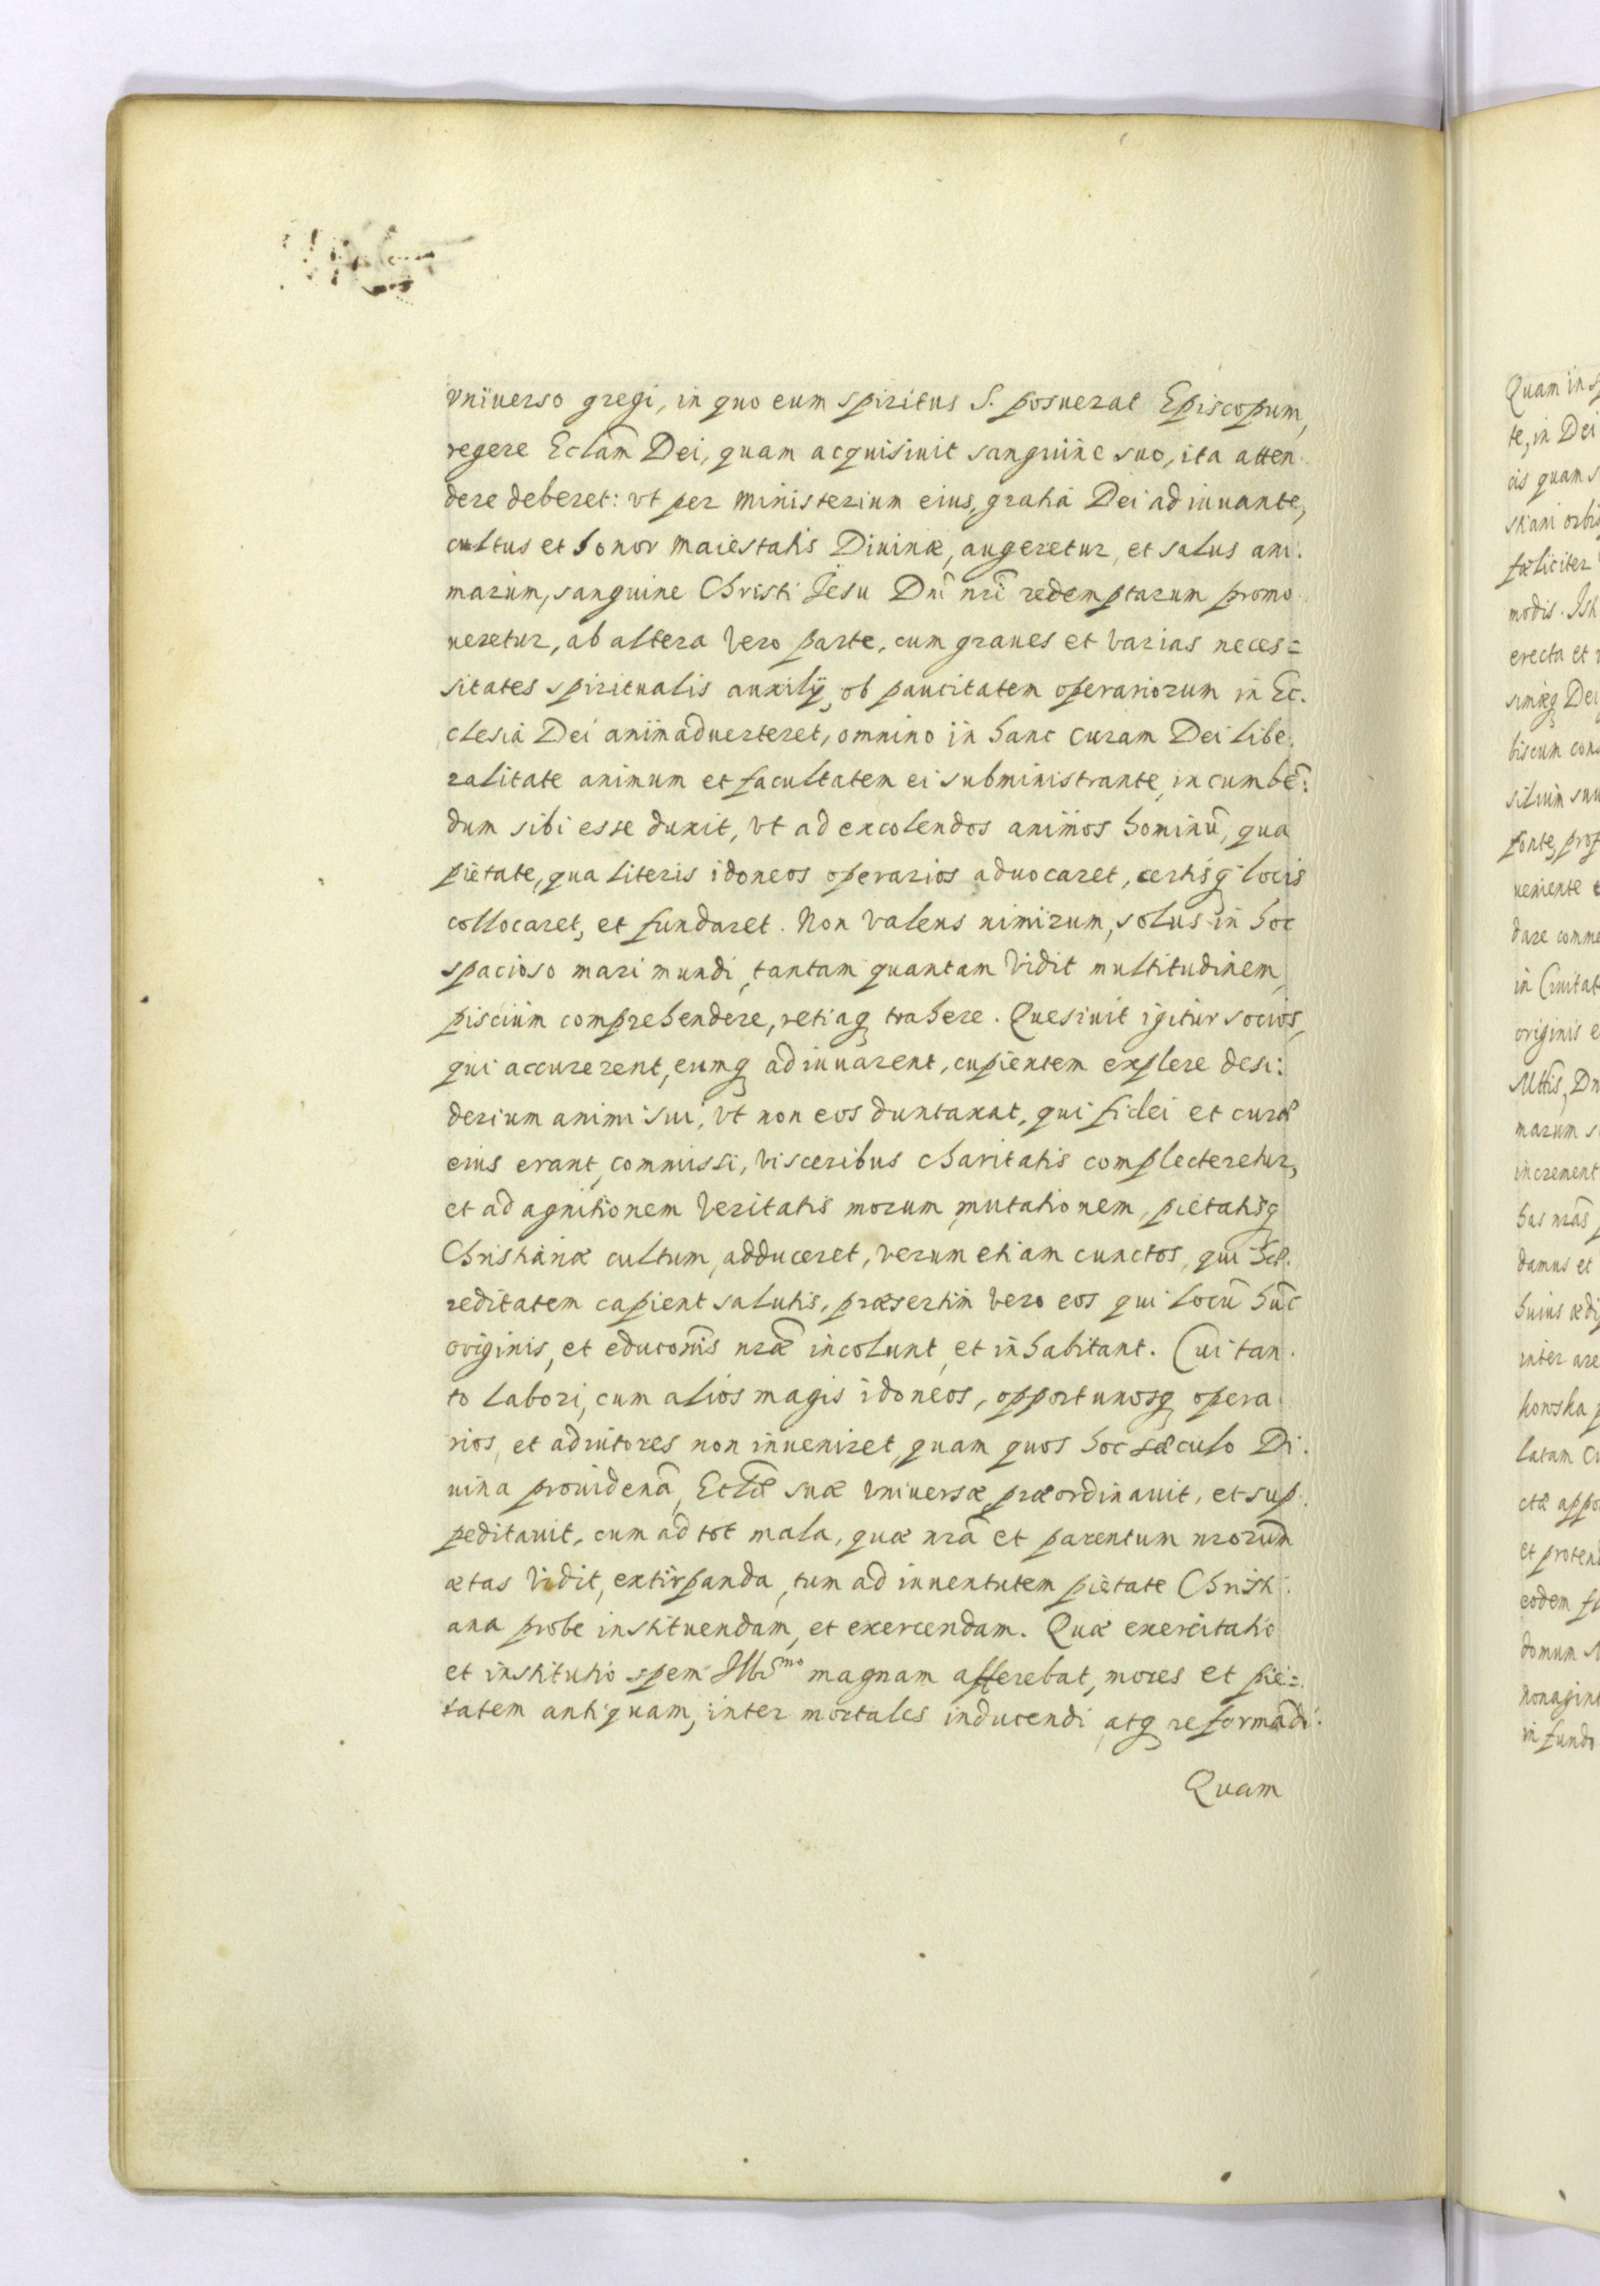 vniuerso gregi, in quo eum spiritus S. posuerat Episcopum,
regere Eclãm Dei, quam acquisiuit sanguine suo, ita atten
dere deberet: vt per ministerium eius, gratia Dei adiuuante,
cultus et honor Maiestatis Diuinæ, augeretur, et salus ani:
marum, sanguine Christi Jesu Dñi nri redemptarum promo
ueretur, ab altera vero parte, cum graues et varias neces=
sitates spiritualis auxilij, ob paucitatem operariorum in Ec.
clesia Dei animaduerteret, omnino in hanc curam Dei libe.
ralitate animum et facultatem ei subministrante, incumbẽ:
dum sibi esse duxit, vt ad excolendos animos hominũ, qua
pietate, qua literis idoneos operarios aduocaret, certisq locis
collocaret, et fundaret. Non valens nimirum, solus in hoc
spacioso mari mundi, tantam quantam vidit multitudinem,
piscium comprehendere, retiaq trahere. Quesiuit igitur socios,
qui accurerent, eumq adiuuarent, cupientem explere desi:
derium animi sui, vt non eos duntaxat, qui fidei et curæ
eius erant, commissi, visceribus charitatis complecteretur,
et ad agnitionem veritatis morum mutationem, pietatisq
Christianæ cultum, adduceret, verum etiam cunctos, qui hæ.
reditatem capient salutis, præsertim vero eos qui locũ hũc
originis, et educoñis nræ incolunt, et inhabitant. Cui tan.
to labori, cum alios magis idoneos, opportunosq opera
rios, et adiutores non inueniret, quam quos hoc sæculo Di.
uina prouidenã, Eclæ suæ vniuersæ præordinauit, et sup.
peditauit, cum ad tot mala, quæ nrã et parentum nrorũm
ætas vidit, extirpanda, tum ad iuuentutem pietate Christi.
ana probe instituendam, et exercendam. Quæ exercitatio
et institutio spem Illmo magnam afferebat, mores et pie=
tatem antiquam, inter mortales inducendi, atq reformãdi.
Quam